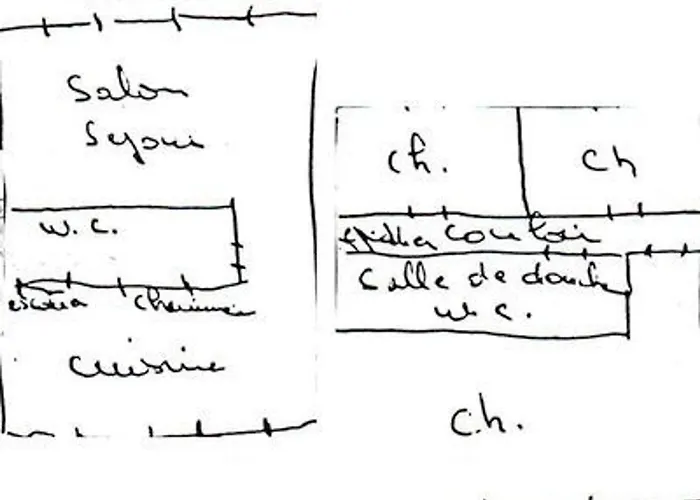 Salon
Sejour
w. c.
escalier Cheminée
cuisine
ch. ch
couloir
Salle de douche
w. c.
ch.